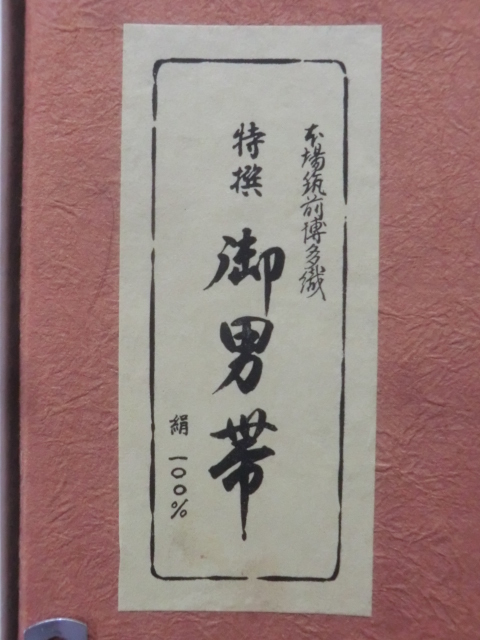 本場筑前博多織
特撰
御男帯
絹一〇〇%